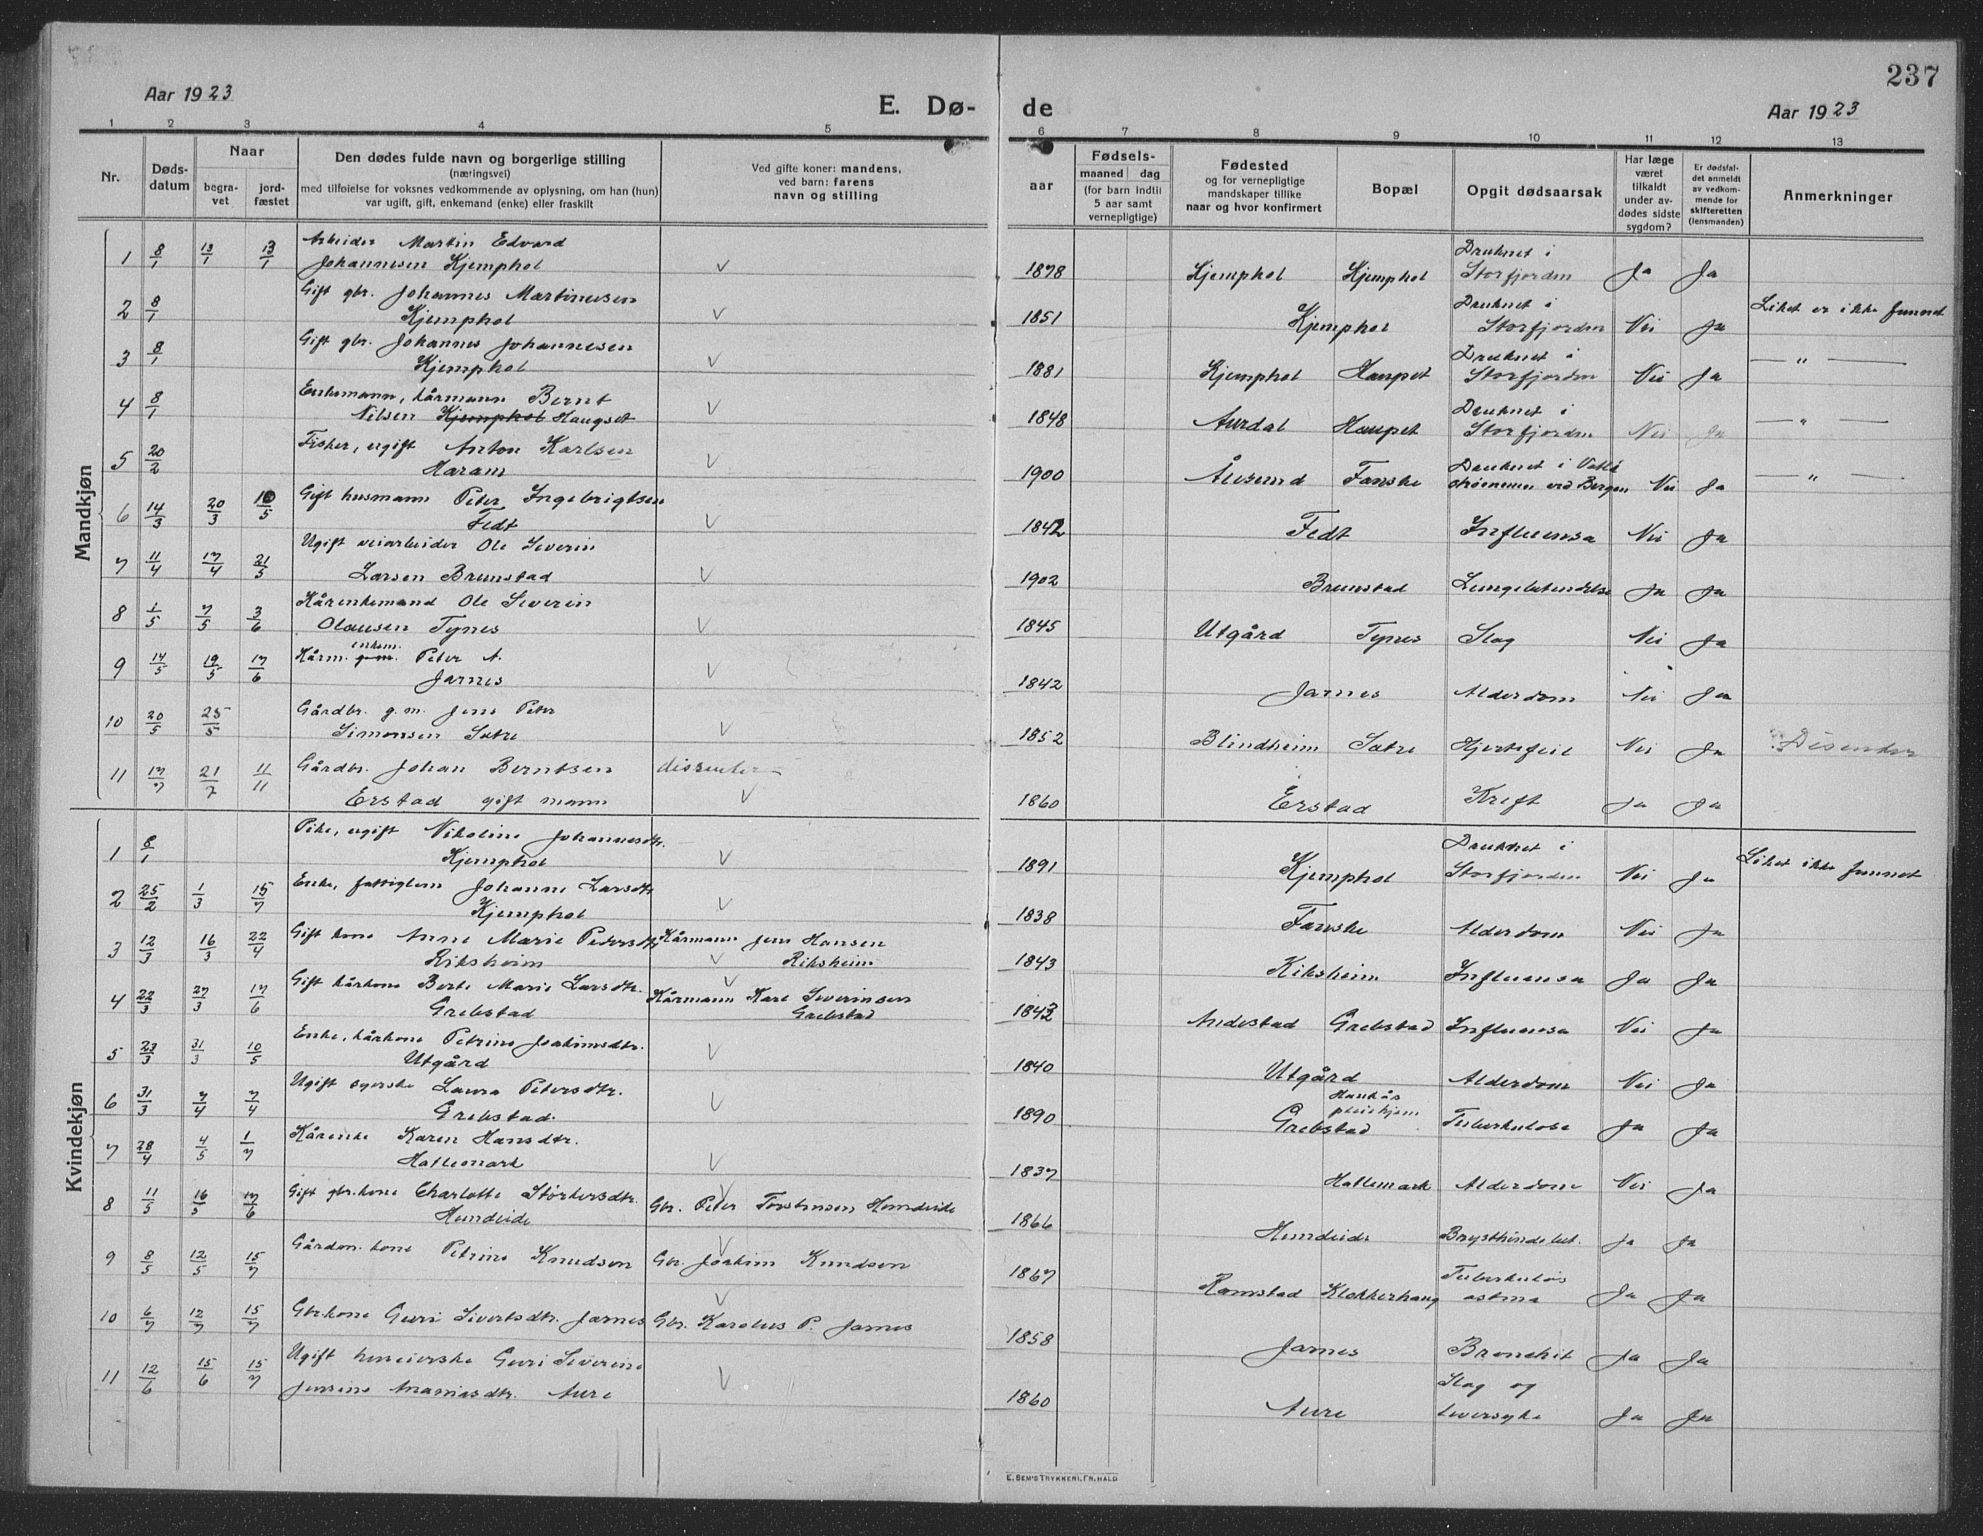 237
Aar 1923
E. Dø-
de
Aar 1923
1 2 3 4 5 6 7 8 9 10 11 12 13
Nr.
Døds-
datum
Naar
begra-
vet
jord-
fæstet
Den dødes fulde navn og borgerlige stilling
(næringsvei)
med tilføielse for voksnes vedkommende av oplysning, om han (hun)
var ugift, gift, enkemand (enke) eller fraskilt
Ved gifte koner: mandens,
ved barn: farens
navn og stilling
Fødsels-
aar
maaned dag
(for barn indtil
5 aar samt
vernepligtige)
Fødested
og for vernepligtige
mandskaper tillike
naar og hvor konfirmert
Bopæl
Opgit dødsaarsak
Har læge
været
tilkaldt
under av-
dødes sidste
sygdom?
Er dødsfal-
det anmeldt
av vedkom-
mende for
skifteretten
(lensmanden)
Anmerkninger
Mandkjøn
1 8/1 13/1 13/1 Arbeider Martin Edvard
Johannesen Kjemphol √ 1878 Kjemphol Kjemphol Druknet i
Storfjorden Ja Ja
2 8/1 Gift gbr. Johannes Martinusen
Kjemphol √ 1851 Kjemphol Druknet i
Storfjorden Nei Ja Liket er ikke funnet
3 8/1 Gift gbr. Johannes Johannesen
Kjemphol √ 1881 Kjemphol Druknet i
Storfjorden Nei Ja — " —
4 8/1 Enkemann, kårmann Bernt
Nilsen Kjemphol Haugset √ 1848 Aurdal Druknet i
Storfjorden Nei Ja — " —
5 20/2 Fisker, ugift Anton Karlsen
Haram √ 1900 Ålesund Fanske Druknet i
ved Bergen Nei Ja "
6 14/3 20/3 10/5 Gift husmann Peter Ingebrigtsen
Fedt √ 1842 Fedt Influensa Nei Ja
7 11/4 17/4 21/5 Ugift veiarbeider Ole Severin
Larsen Brunstad √ 1902 Brunstad Lungebetendelse Ja Ja
8 1/5 7/5 3/6 Kårenkemand Ole Severin
Olausen Tynes √ 1845 Utgård Tynes Slag Nei Ja
9 14/5 19/5 17/6 Kårm. enkem. g.m. Peter A.
Jarnes √ 1842 Jarnes Alderdom Nei Ja
10 20/5 25/5 Gårdbr. g.m. Jens Peter
Simonsen Sætre √ 1852 Blindheim Sætre Hjertefeil Nei Ja Disenter
11 17/7 21/7 11/11 Gårdbr. Johan Berntsen dissenter
Erstad gift mann √ 1860 Erstad Kreft Ja Ja
Kvindekjøn
1 8/1 Pike, ugift Nikoline Johannesdtr.
Kjemphol √ 1891 Kjemphol Druknet i
Storfjorden Nei Ja Liket ikke funnet
2 25/2 1/3 15/7 Enke, fattiglem Johanne Larsdtr
Kjemphol √ 1838 Fanske Alderdom Nei Ja
3 12/3 16/3 22/4 Gift kone Anne Marie Pedersdtr Kårmann Jens Hansen
Riksheim √ Riksheim 1843 Riksheim Influensa Ja Ja
4 22/3 27/3 17/6 Gift kårkone Berte Marie Larsdtr. √ Kårmann Karl Severinsen
Grebstad Grebstad 1843 Andestad Grebstad Influensa Nei Ja
5 23/3 31/3 10/5 Enke, kårkone Petrine Joakimsdtr.
Utgård √ 1840 Utgård Alderdom Nei Ja
6 31/3 7/4 7/4 Ugift syerske Laura Petersdtr.
Grebstad. √ 1890 Grebstad pleiehjem Tuberkulose Ja Ja
7 28/4 4/5 1/7 Kårenke Karen Hansdtr.
Hallemark √ 1837 Hallemark Alderdom Nei Ja
8 11/5 16/5 17/6 Gift gbr.kone Charlotte Størkersdtr. √ Gbr. Peter Torstensen Hundeide
Hundeide 1866 Hundeide Brysthindebet. Ja Ja
9 8/5 12/5 15/7 Gårdm. kone Petrine Knudsen √ Gbr. Joakim Knudsen 1867 Ramstad Klokkerhaug Tuberkuløs
astma Ja Ja
10 6/7 12/7 15/7 Gbr.kone Guri Sivertsdtr. Jarnes √ Gbr. Karolus P. Jarnes 1858 Jarnes Bronchit Ja Ja
11 12/6 15/6 15/7 Ugift Guri Severine
Jensine Ananiasdtr. Aure √ 1860 Aure Slag og
leversyke Ja Ja
E. SEM'S TRYKKERI, FR.HALD